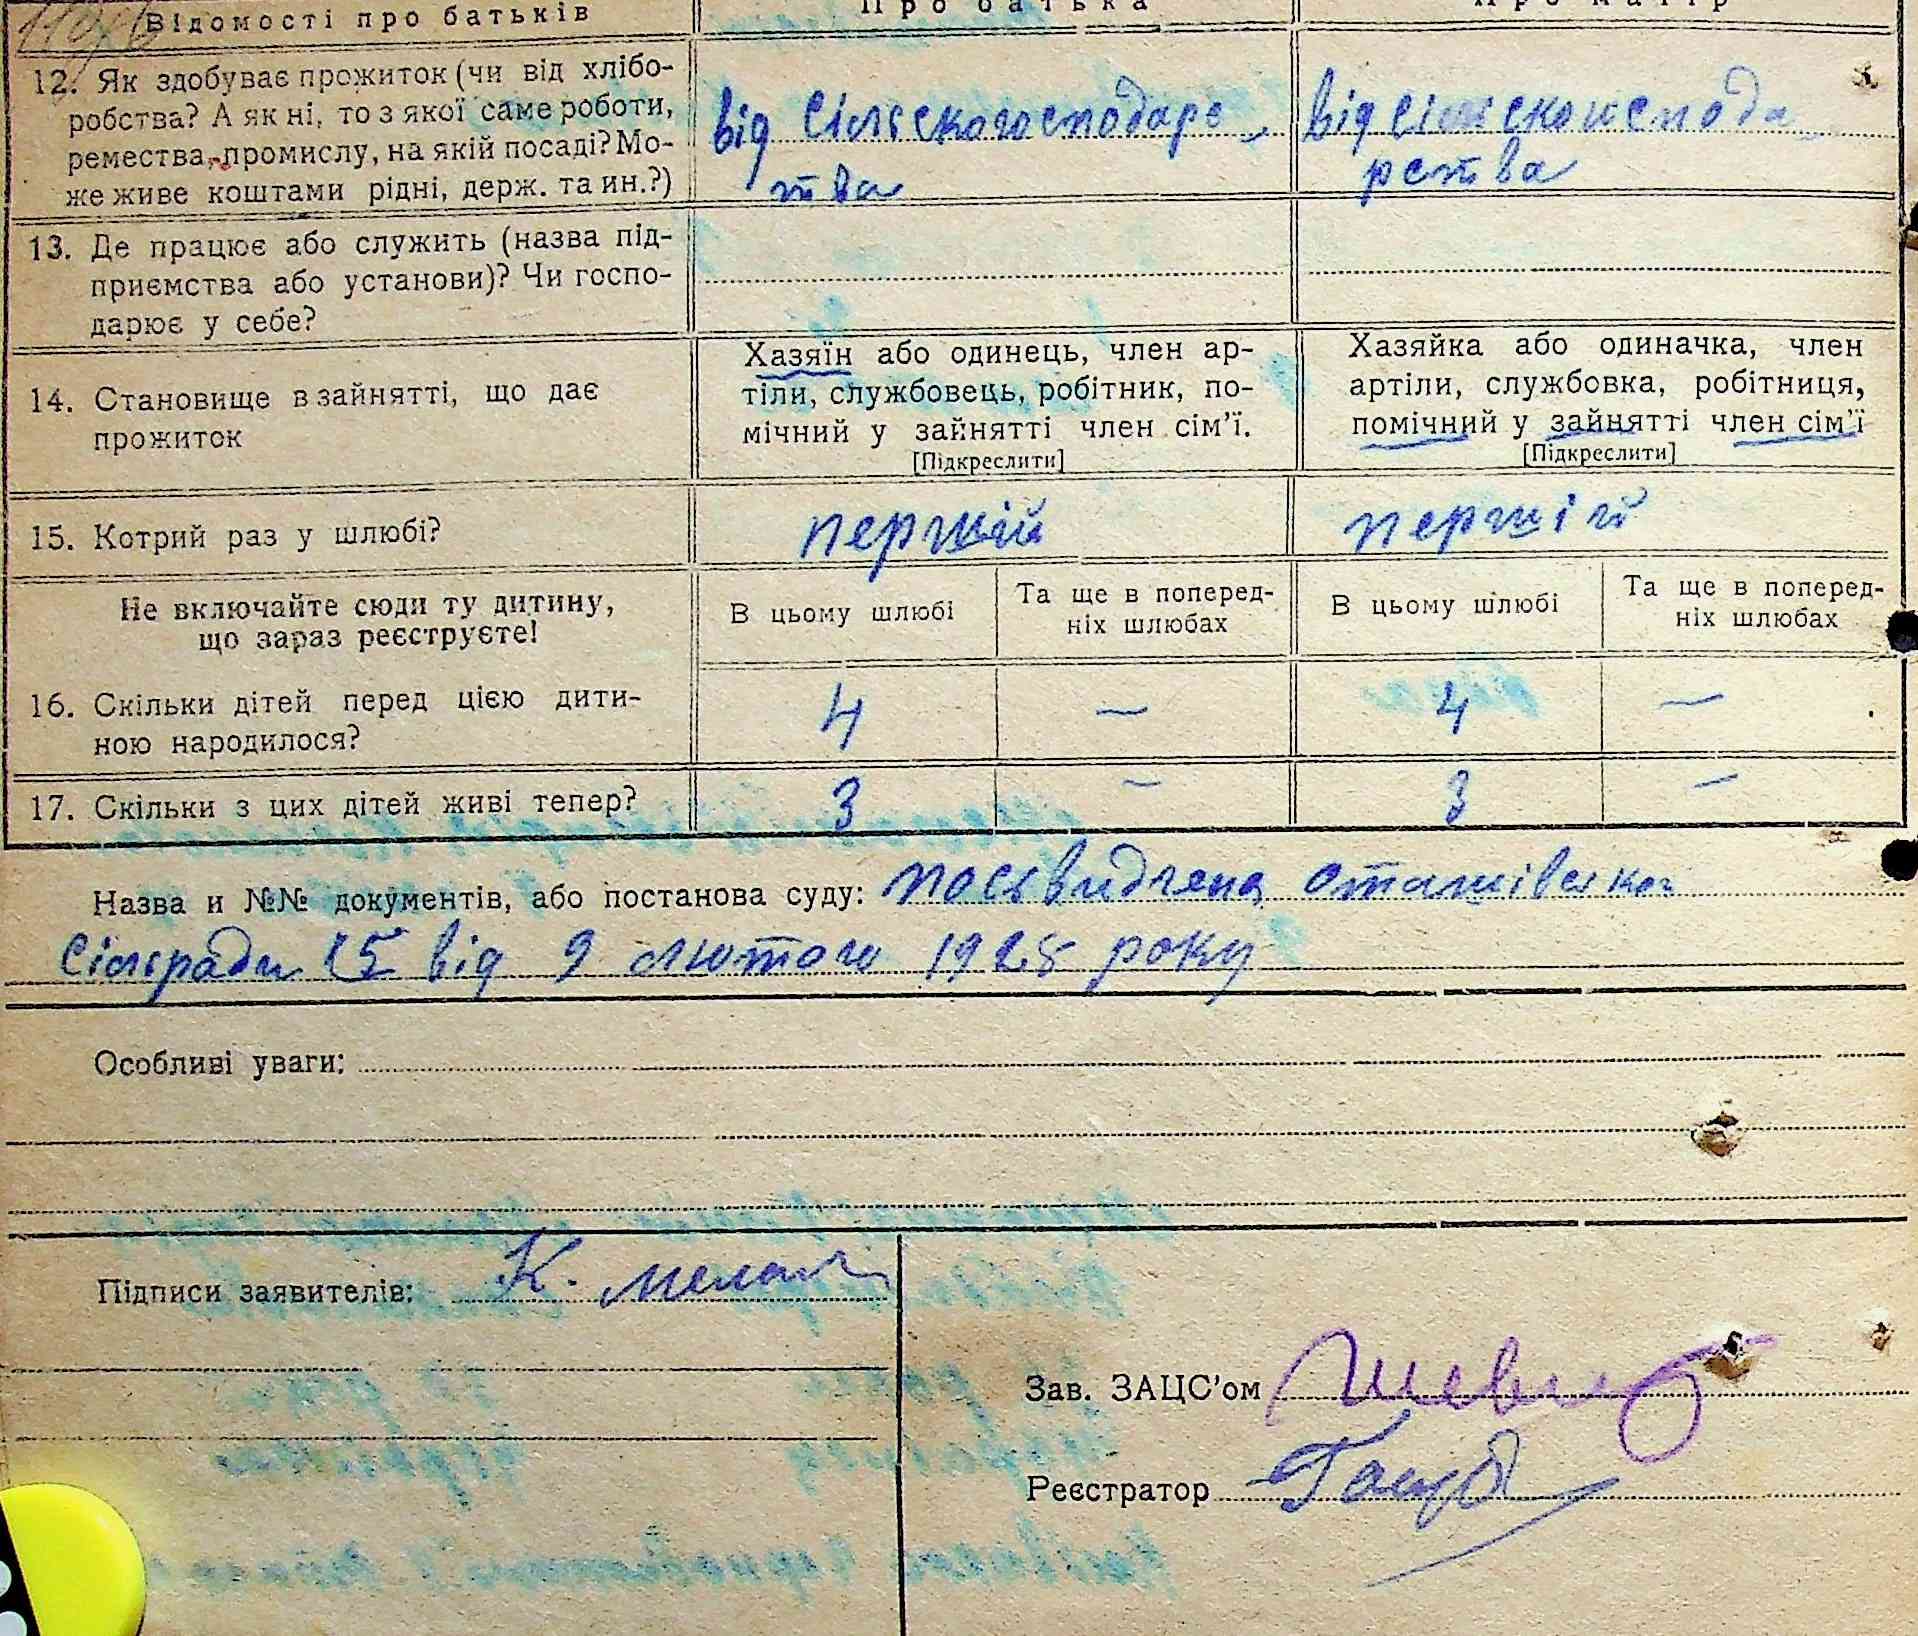 Відомості про батьків
Про батька
Про матір
12. Як здобуває прожиток (чи від хлібо-
робства? А як ні, то з якої саме роботи,
ремества, промислу, на якій посаді? Мо-
же живе коштами рідні, держ. та ин.?)
від Сільскогосподарс
тва
від сільскогоспода
рства
13. Де працює або служить (назва під-
приємства або установи)? Чи госпо-
дарює у себе?
14. Становище в зайнятті, що дає
прожиток
Хазяїн або одинець, член ар-
тіли, службовець, робітник, по-
мічний у зайнятті член сім'ї.
[Підкреслити]
Хазяйка або одиначка, член
артіли, службовка, робітниця,
помічний у зайнятті член сім'ї
[Підкреслити]
15. Котрий раз у шлюбі?
першій
першій
Не включайте сюди ту дитину,
що зараз реєструєте!
В цьому шлюбі
Та ще в поперед-
ніх шлюбах
В цьому шлюбі
Та ще в поперед-
ніх шлюбах
16. Скільки дітей перед цією дити-
ною народилося?
4 — 4 —
17. Скільки з цих дітей живі тепер?
3 — 3 —
Назва и №№ документів, або постанова суду:
Сільради 15 від 9 лютого 1928 року
Особливі уваги:
Підписи заявителів: К.
Зав. ЗАЦС'ом
Реєстратор